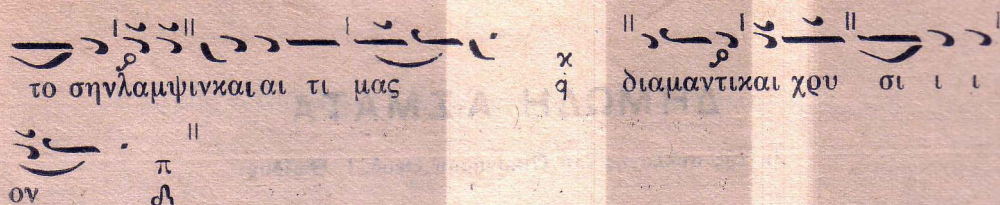 το σην λαμψιν και αι τι μας διαμαντι και χρυ σι ι ι
ον